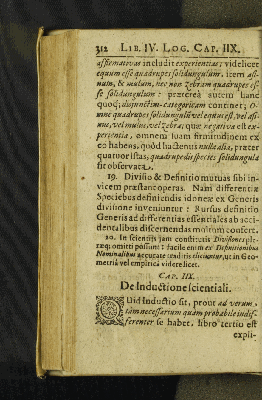 312 LIB. IV. LOG. CAP. IIX.
affirmativas includit experientias; videlicet
equum esse quadrupes solidungulum. item asi-
num, & mulum, nec non zebram quadrupes es-
se solidungulum: præterea autem hanc
quoq; disjunctim-categoricam continet; O-
mne quadrupes solidungulũ vel equus est, vel asi-
nus, vel mulus, vel zebra; quæ negativa est ex-
perientia, omnem suam firmitudinem ex
eo habens, quòd hactenus nulla alia, præter
quatuor istas, quadrupedis species solidungula
sit observata.
19. Divisio & Definitio mutuas sibi in-
vicem præstant operas. Nam differentiæ
Speciebus definiendis idoneæ ex Generis
divisione inveniuntur: Rursus definitio
Generis ad differentias essentiales ab acci-
dentalibus discernendas multùm confert.
20. In scientiis jam constitutis Divisiones ple-
ræq; omitti possunt: facile enim ex Definitionibus
Nominalibus accuratè traditis eliciuntur, ut in Geo-
metriâ vel empiricâ videre licet.
CAP. IIX.
De Inductione scientiali.
QUid Inductio sit, prout ad verum,
tàm necessarium quàm probabile indif-
ferenter se habet, libro tertio est
expli-